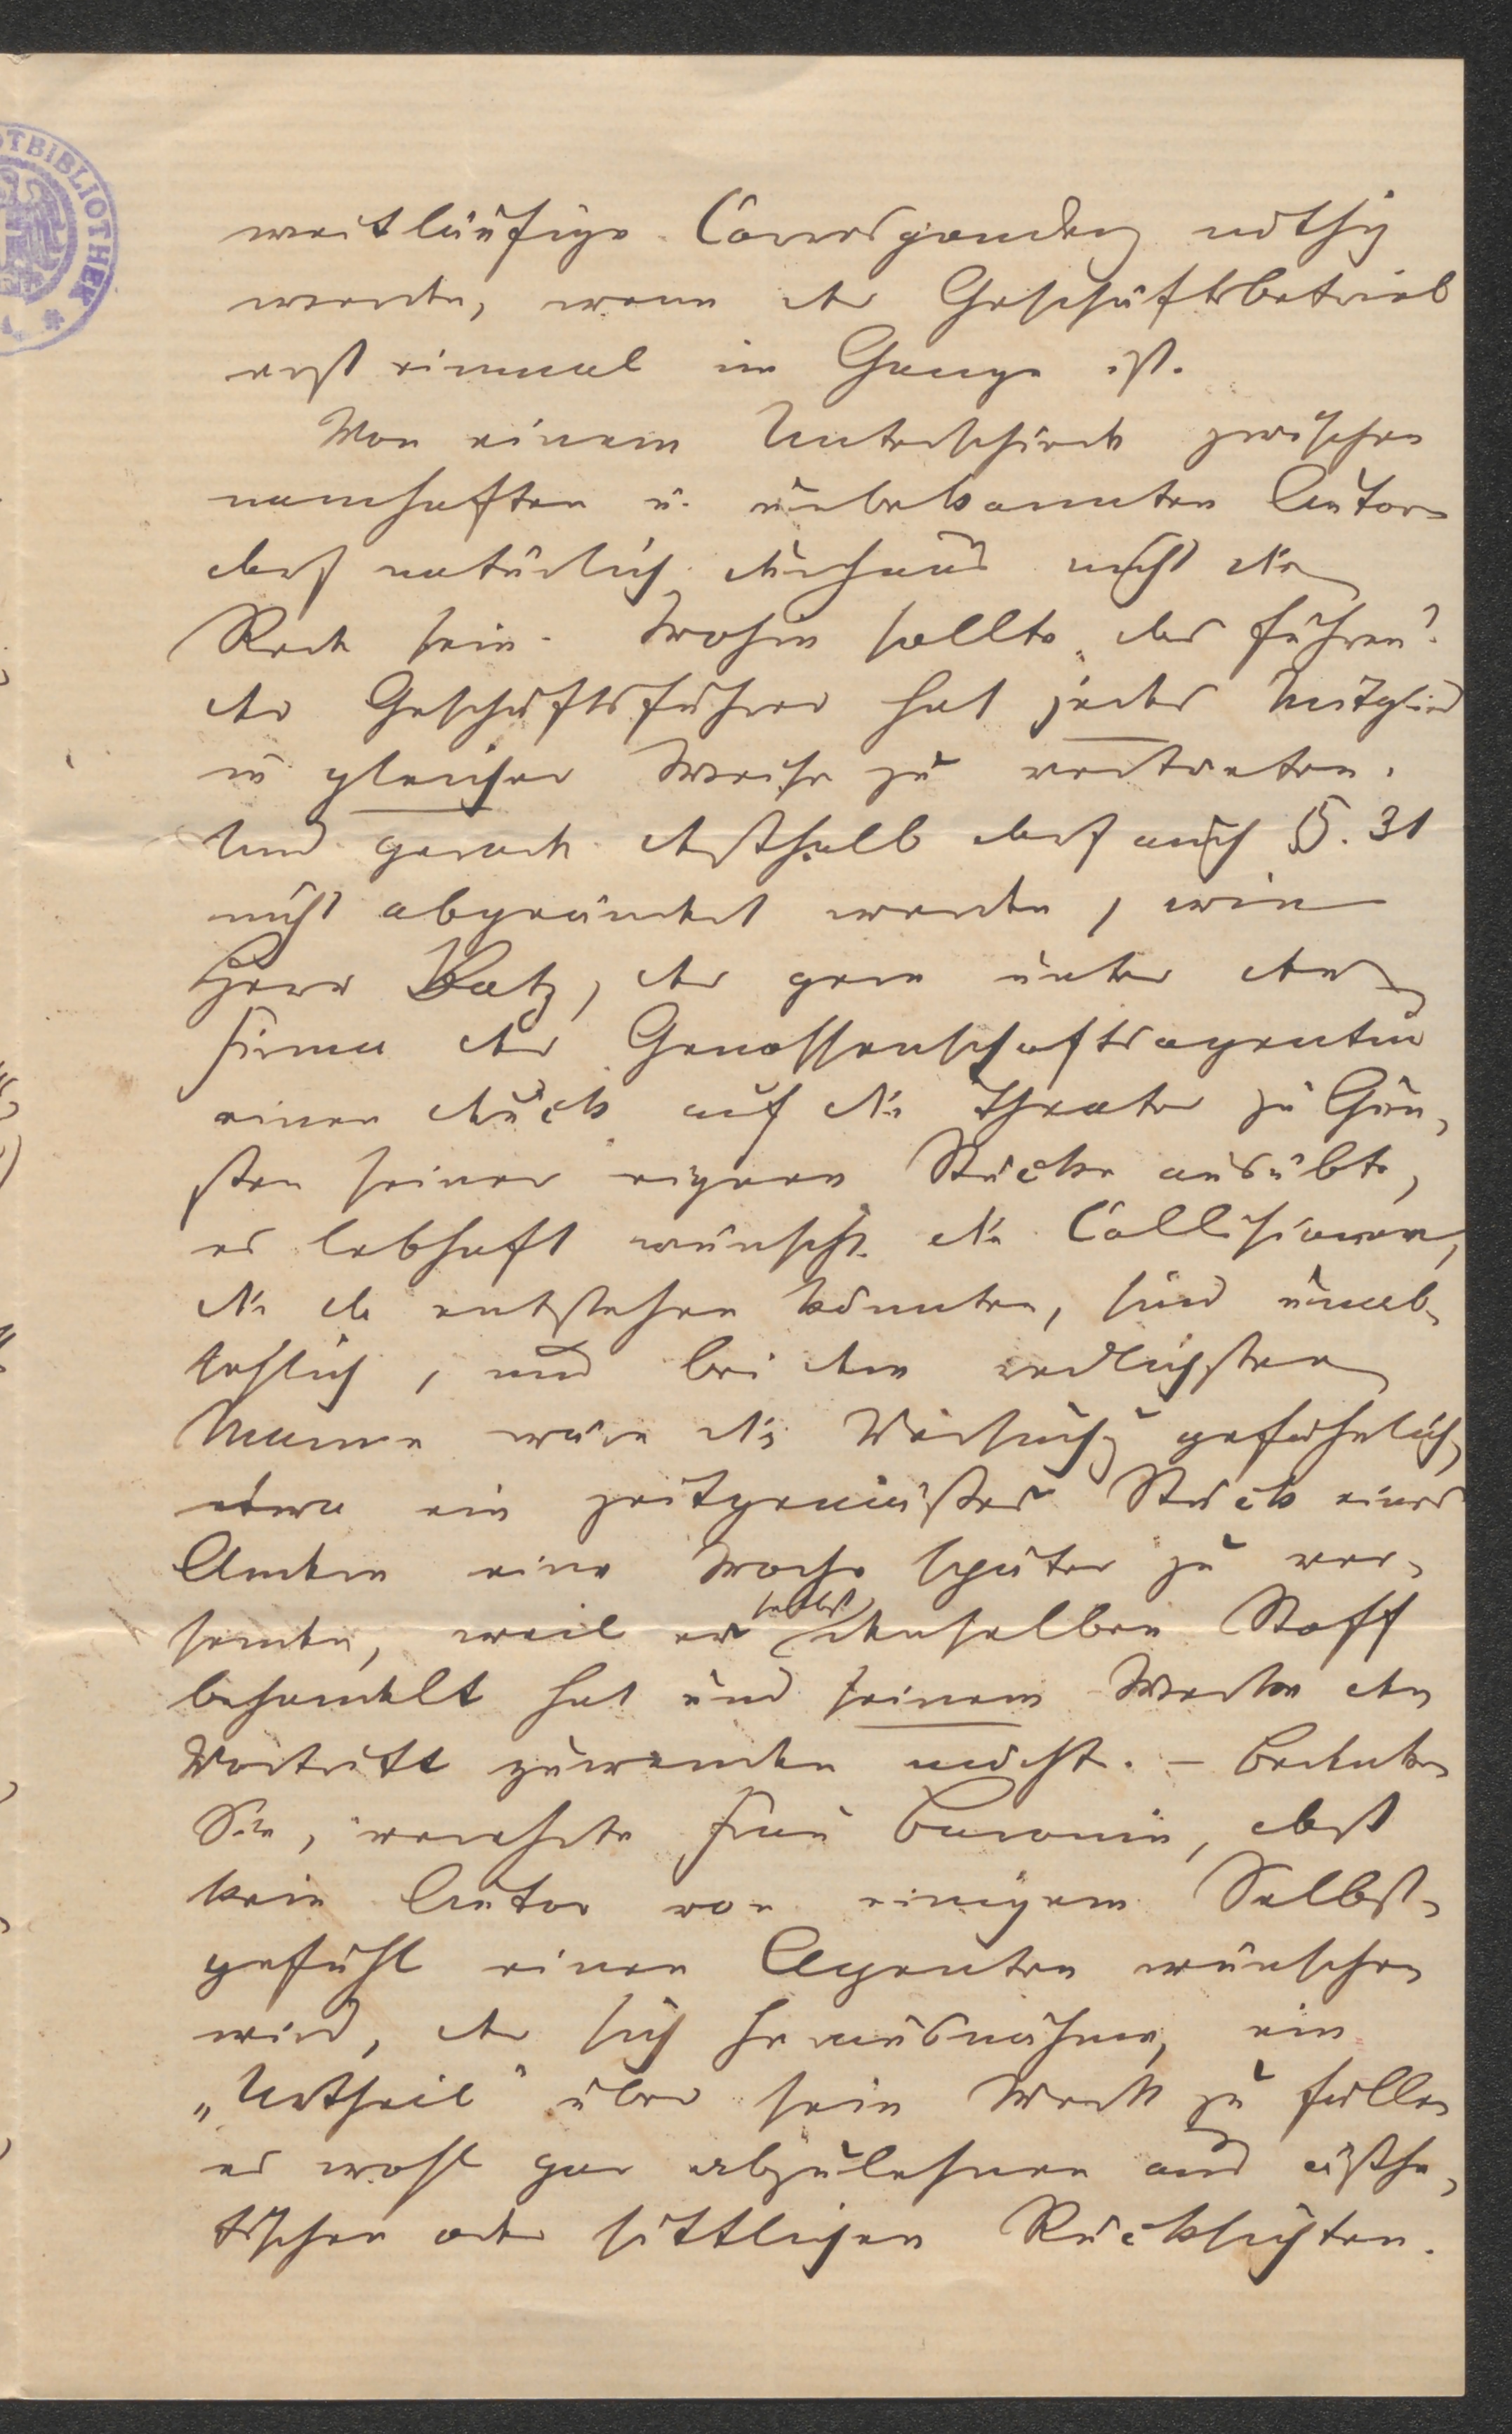 weitläufige Correspondenz nöthig
werden, wenn der Geschäftsbetrieb
erst einmal im Gange ist.
Von einem Unterschiede zwischen
namhaften u. unbekannten Autoren
darf natürlich durchaus nicht die
Rede sein. Wohin sollte das führen?
der Geschäftsführer hat jedes Mitglied
in gleicher Weise zu vertreten.
Und gerade deßhalb darf auch §. 31
nicht abgeändert werden, wie
Herr Batz, der gern unter der
Firma der Genossenschaftsagentur
einen Druck auf die Theater zu Gun-
sten seiner eigenen Stücke ausübte,
es lebhaft wünscht. die Collisionen,
die da entstehen könnten, sind unab-
sehlich, und bei dem redlichsten
Manne wäre die Versuchg gefährlich,
etwa ein zeitgemäßes Stück eines
Andern eine Woche später zu ver-
senden, weil er selbst denselben Stoff
behandelt hat und seinem Werke den
Vortritt zuwenden möchte. – Bedenken
Sie, verehrte Frau Baronin, daß
kein Autor von einigem Selbst-
gefühl einen Agenten wünschen
wird, der sich herausnähme, ein
„Urtheil" über sein Werk zu fällen
es wohl gar abzulehnen aus ästhe-
tischen oder sittlichen Rücksichten.
TBIBLIOTHEK